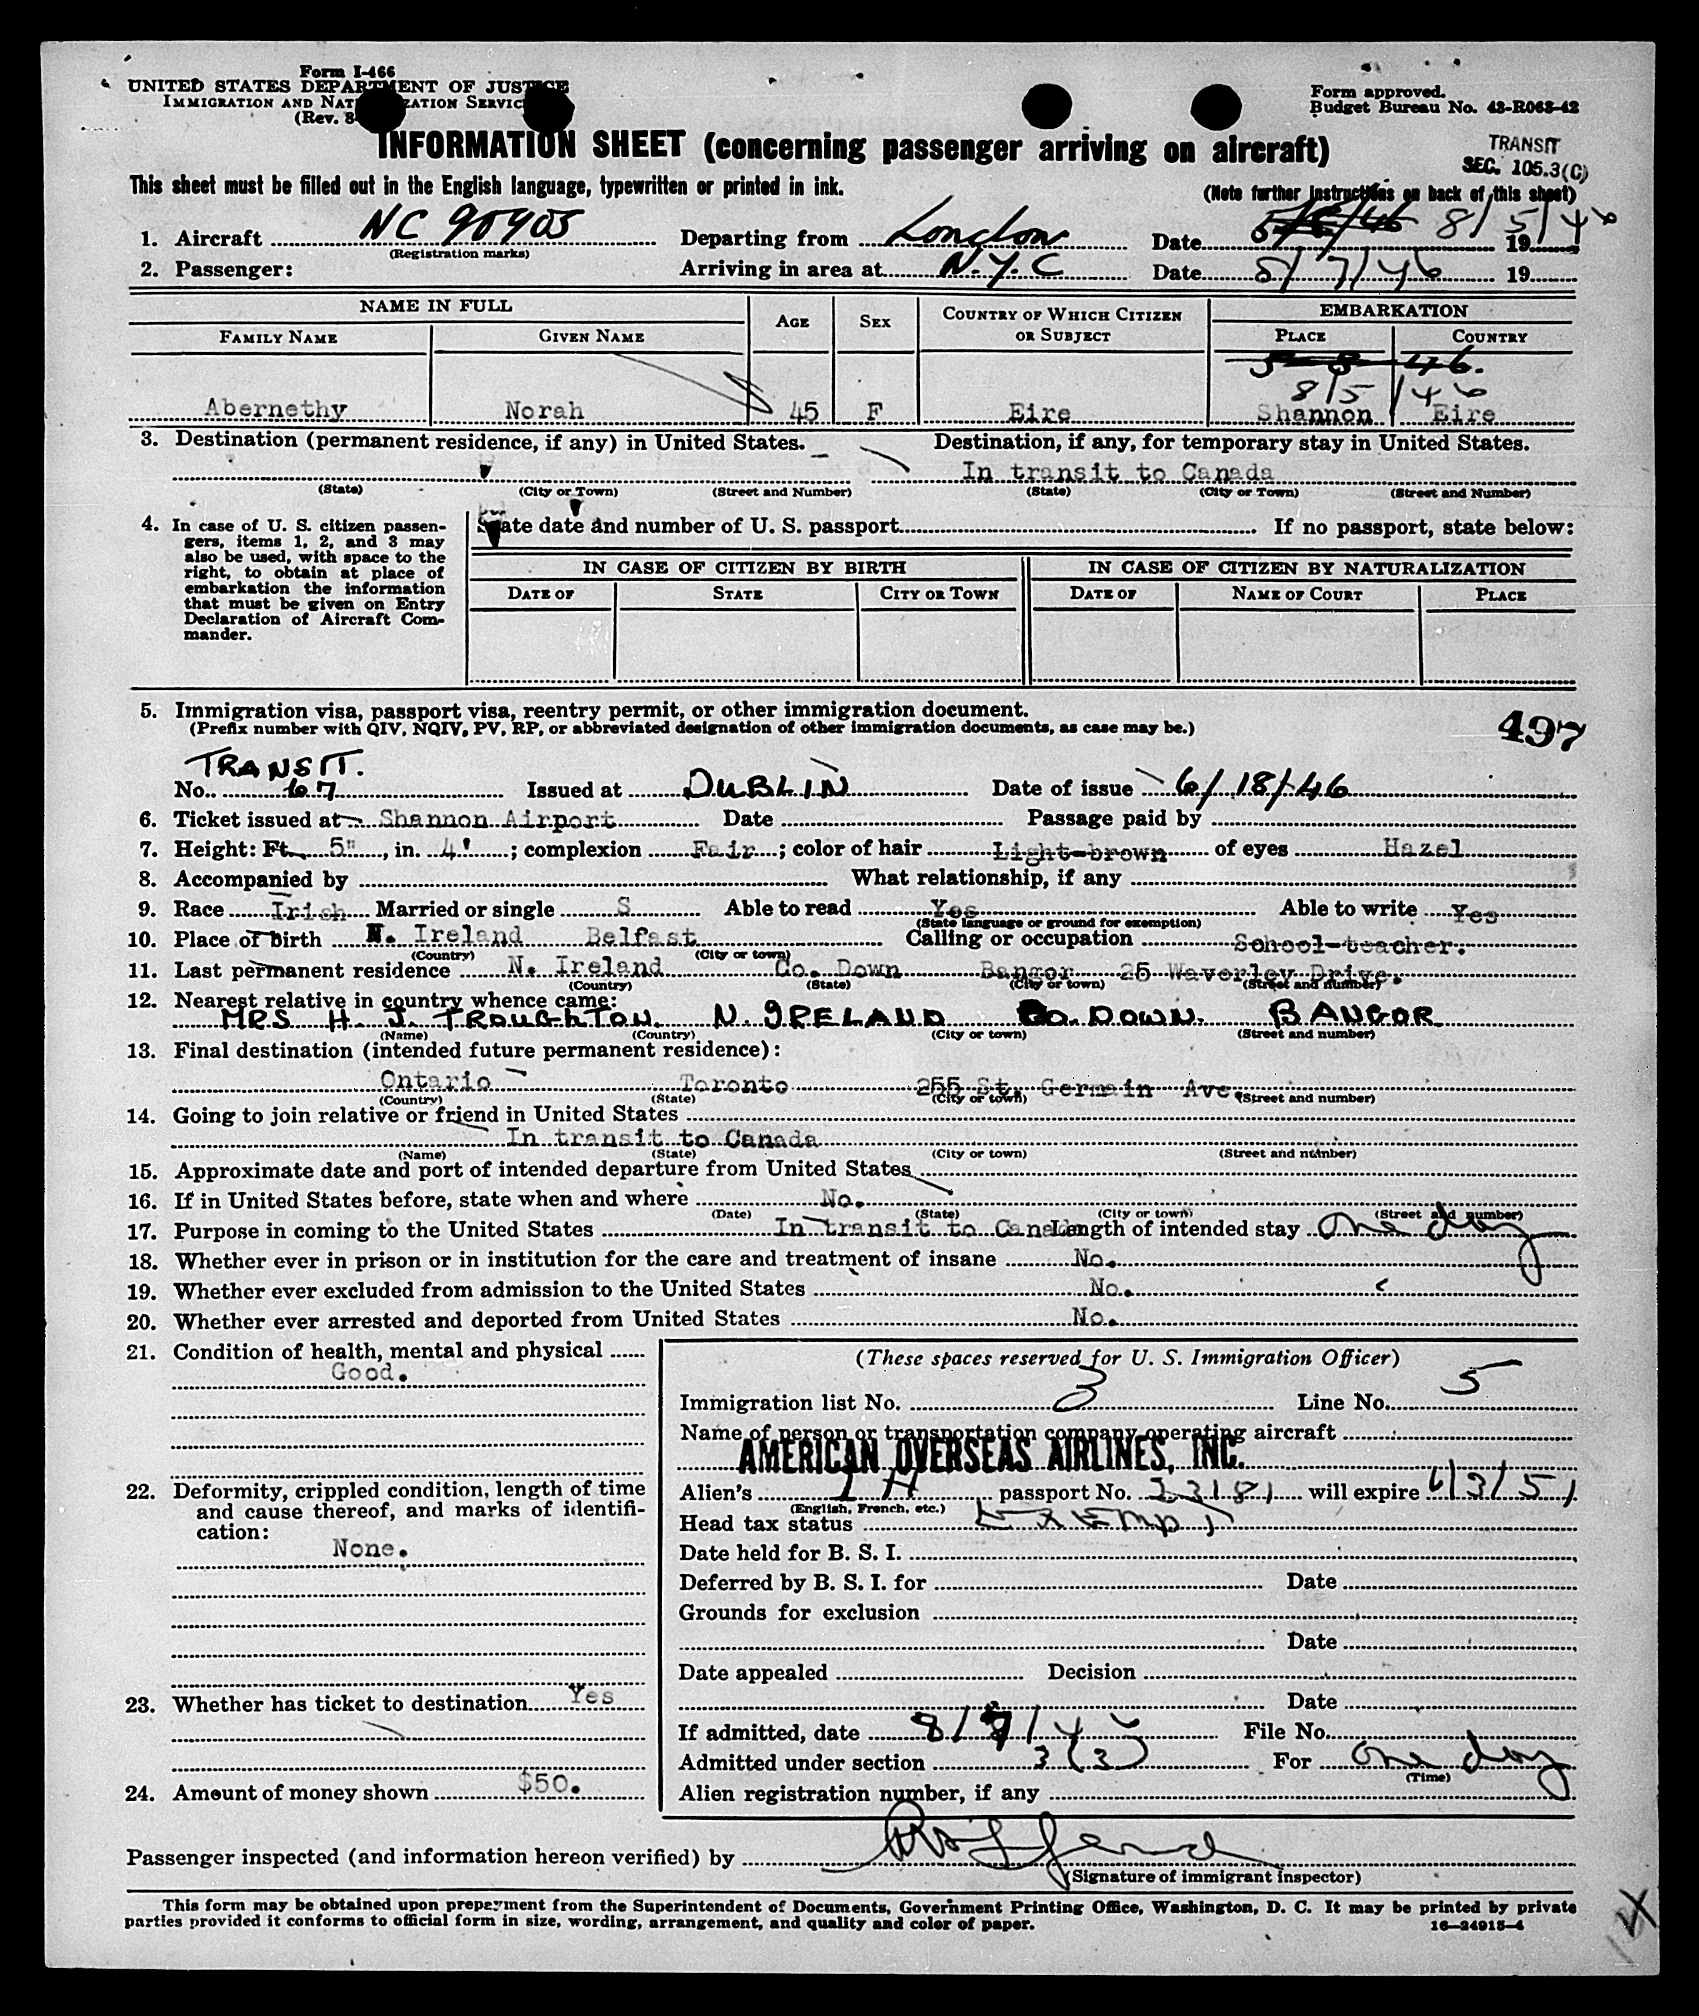 Form I-466
UNITED STATES DEPARTMENT OF JUSTICE
IMMIGRATION AND NATURALIZATION SERVICE
(Rev. 8-
Form approved.
Budget Bureau No. 43-R063-42
INFORMATION SHEET (concerning passenger arriving on aircraft)
TRANSIT
SEC. 105.3(C)
This sheet must be filled out in the English language, typewritten or printed in ink.
(Note further instructions on back of this sheet)
1. Aircraft NC 90905 Departing from London Date 8/5/46 19
(Registration marks)
2. Passenger: Arriving in area at N.Y.C Date 8/7/46 19
NAME IN FULL AGE SEX COUNTRY OF WHICH CITIZEN OR SUBJECT EMBARKATION
FAMILY NAME GIVEN NAME PLACE COUNTRY
5 8 46.
8/5/46
Abernethy Norah 45 F Eire Shannon Eire
3. Destination (permanent residence, if any) in United States. Destination, if any, for temporary stay in United States.
In transit to Canada
(State) (City or Town) (Street and Number) (State) (City or Town) (Street and Number)
4. In case of U. S. citizen passengers, items 1, 2, and 3 may also be used, with space to the right, to obtain at place of embarkation the information that must be given on Entry Declaration of Aircraft Commander.
State date and number of U. S. passport If no passport, state below:
IN CASE OF CITIZEN BY BIRTH IN CASE OF CITIZEN BY NATURALIZATION
DATE OF STATE CITY OR TOWN DATE OF NAME OF COURT PLACE
5. Immigration visa, passport visa, reentry permit, or other immigration document.
(Prefix number with QIV, NQIV, PV, RP, or abbreviated designation of other immigration documents, as case may be.)
497
TRANSIT.
No. 67 Issued at DUBLIN Date of issue 6/18/46
6. Ticket issued at Shannon Airport Date Passage paid by
7. Height: Ft. 5", in. 4'; complexion Fair; color of hair Light-brown of eyes Hazel
8. Accompanied by What relationship, if any
9. Race Irish Married or single S Able to read Yes Able to write Yes
(State language or ground for exemption)
10. Place of birth N. Ireland Belfast Calling or occupation School-teacher.
(Country) (City or town)
11. Last permanent residence N. Ireland Co. Down Bangor 25 Waverley Drive.
(Country) (State) (City or town) (Street and number)
12. Nearest relative in country whence came:
MRS H. J. TROUGHTON. N. IRELAND CO. DOWN. BANGOR
(Name) (Country) (City or town) (Street and number)
13. Final destination (intended future permanent residence):
Ontario Toronto 255 St. Germain Ave.
(Country) (State) (City or town) (Street and number)
14. Going to join relative or friend in United States
In transit to Canada
(Name) (State) (City or town) (Street and number)
15. Approximate date and port of intended departure from United States
16. If in United States before, state when and where No.
(Date) (State) (City or town) (Street and number)
17. Purpose in coming to the United States In transit to Canada Length of intended stay One day
18. Whether ever in prison or in institution for the care and treatment of insane No.
19. Whether ever excluded from admission to the United States No.
20. Whether ever arrested and deported from United States No.
21. Condition of health, mental and physical
Good.
22. Deformity, crippled condition, length of time and cause thereof, and marks of identification:
None.
23. Whether has ticket to destination Yes
24. Amount of money shown $50.
(These spaces reserved for U. S. Immigration Officer)
Immigration list No. 3 Line No. 5
Name of person or transportation company operating aircraft
AMERICAN OVERSEAS AIRLINES, INC.
Alien's passport No. 33181 will expire 6/3/51
(English, French, etc.)
Head tax status Exempt
Date held for B. S. I.
Deferred by B. S. I. for Date
Grounds for exclusion
Date
Date appealed Decision
Date
If admitted, date 8/7/46 File No.
Admitted under section 3(3) For One day
(Time)
Alien registration number, if any
Passenger inspected (and information hereon verified) by
(Signature of immigrant inspector)
This form may be obtained upon prepayment from the Superintendent of Documents, Government Printing Office, Washington, D. C. It may be printed by private
parties provided it conforms to official form in size, wording, arrangement, and quality and color of paper.
16-24915-4